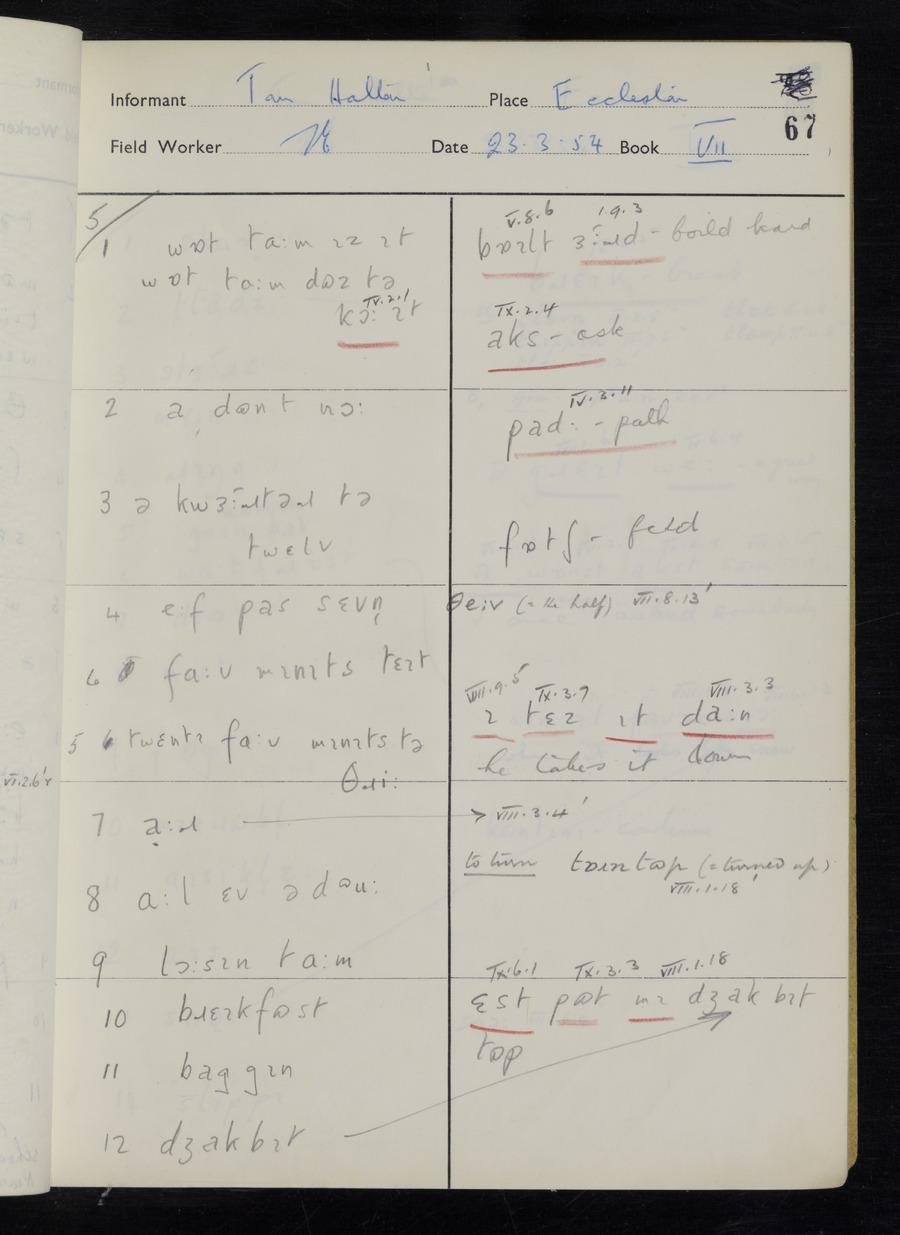 Informant Tom Halton Place Eccleston
67
Field Worker Date 23.3.54 Book VII
5
1 wɒt ta:m ɪz ɪt
wɒt ta:m dʊz tə
IV.2.1
kɔ: ɪt
2 a dʊnt nɔ:
3 ə kwɜ:ɹtəɹ tə
twɛlv
4 e:f pas sɛvn̩
6 fa:v mɪnɪts tɛɪt
5 twɛntɪ fa:v mɪnɪts tə
θɹi:
VI.2.6
7 a:ɹ
8 a:l ɛv ə dʊu:
9 lɔ:sɪn ta:m
10 bɹɛɪkfəst
11 baggɪn
12 dʒakbɪt
V.8.6 1.9.3
bɒɪlt ɜ:ɹd - boild heard
IX.2.4
aks - ask
IV.3.11
pad: - path
fɒtʃ - fetd
θe:v (= the half) VII.8.13'
VIII.9.5 IX.3.7 VIII.3.3
ɪ tɛz ɪt da:n
he takes it down
> VIII.3.4'
to turn tɒɪntɒp (= turned up)
VIII.1.18'
IX.6.1 IX.3.3 VIII.1.18
ɛst pʊt mɪ dʒak bɪt
tɒp